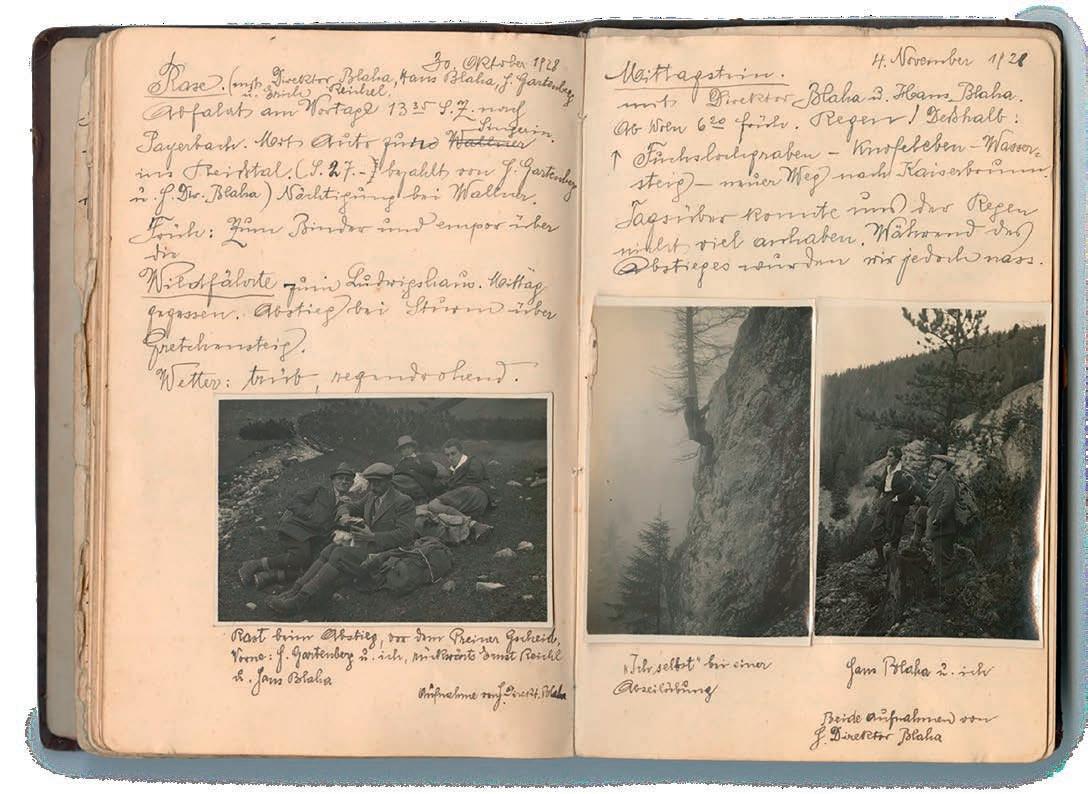 30. Oktober 1928
Rax. (mit Direktor Blaha, Hans Blaha, H. Gartenberg
u. Erich Reichel.
Abfahrt am Vortage 13 35 S. 7. nach
Payerbach. Mit Auto zum Wallner
ins Reidtal. (S. 27.- bezahlt von H. Gartenberg
u. H. Dir. Blaha) Nächtigung bei Wallner.
Früh: Zum Binder und empor über
die
Wildfährte zum Ludwigshaus. Mittag
gegessen. Abstieg bei Sturm über
Gretchensteig.
Wetter: trüb, regendrohend.
Rast beim Abstieg, vor dem Preiner Gscheid.
Vorne: H. Gartenberg u. ich, rückwärts Ernst Reichl
u. Hans Blaha
Aufnahme von H. Direkt. Blaha
4. November 1928
Mittagstein.
mit Direktor Blaha u. Hans Blaha.
Ab Wien 6 20 früh. Regen! Deßhalb:
↑ Fuchslochgraben - Knofeleben - Wasser-
steig - neuer Weg nach Kaiserbrunn
Tagsüber konnte uns der Regen
nicht viel anhaben. Während des
Abstieges wurden wir jedoch nass.
"Ich selbst" bei einer
Abseilübung
Hans Blaha u. ich
Beide Aufnahmen von
H. Direktor Blaha